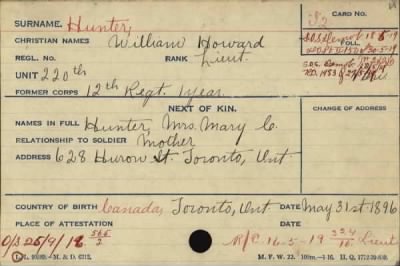 SURNAME. Hunter,
CARD NO.
CHRISTIAN NAMES William Howard
FOLL.
REGL. NO. RANK Lieut.
UNIT 220th
FORMER CORPS 12th Regt. 1 year.
NEXT OF KIN.
CHANGE OF ADDRESS
NAMES IN FULL Hunter, Mrs. Mary C.
RELATIONSHIP TO SOLDIER Mother
ADDRESS 628 Huron St. Toronto, Ont
COUNTRY OF BIRTH Canada, Toronto, Ont DATE May 31st 1896
PLACE OF ATTESTATION DATE
O/S 25/9/16 R/C 16-5-19 Lieut
M. F. W. 22.